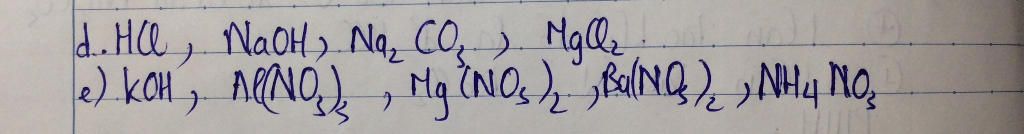 d. HCl, NaOH, Na₂CO₃, MgCl₂.
e) KOH, Al(NO₃)₃, Mg(NO₃)₂, Ba(NO₃)₂, NH4NO₃